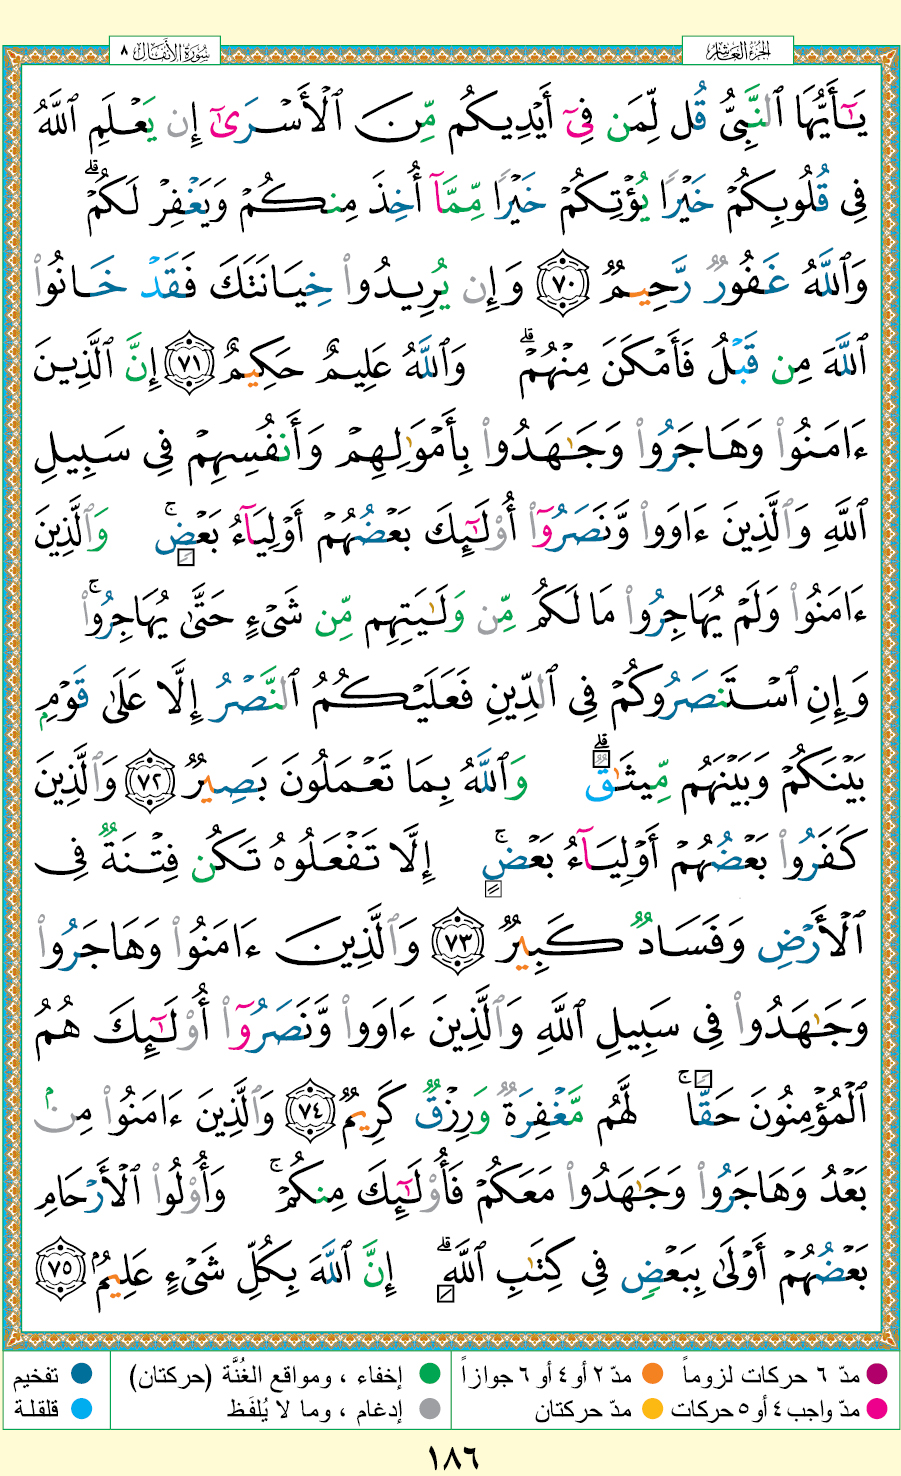 الجزء العاشر
سُورَةُ الأَنفَال ٨
يَـٰٓأَيُّهَا ٱلنَّبِىُّ قُل لِّمَن فِىٓ أَيْدِيكُم مِّنَ ٱلْأَسْرَىٰٓ إِن يَعْلَمِ ٱللَّهُ
فِى قُلُوبِكُمْ خَيْرًا يُؤْتِكُمْ خَيْرًا مِّمَّآ أُخِذَ مِنكُمْ وَيَغْفِرْ لَكُمْ ۗ
وَٱللَّهُ غَفُورٌ رَّحِيمٌ ﴿٧٠﴾ وَإِن يُرِيدُوا۟ خِيَانَتَكَ فَقَدْ خَانُوا۟
ٱللَّهَ مِن قَبْلُ فَأَمْكَنَ مِنْهُمْ ۗ وَٱللَّهُ عَلِيمٌ حَكِيمٌ ﴿٧١﴾ إِنَّ ٱلَّذِينَ
ءَامَنُوا۟ وَهَاجَرُوا۟ وَجَـٰهَدُوا۟ بِأَمْوَٰلِهِمْ وَأَنفُسِهِمْ فِى سَبِيلِ
ٱللَّهِ وَٱلَّذِينَ ءَاوَوا۟ وَّنَصَرُوٓا۟ أُو۟لَـٰٓئِكَ بَعْضُهُمْ أَوْلِيَآءُ بَعْضٍ ۚ وَٱلَّذِينَ
ءَامَنُوا۟ وَلَمْ يُهَاجِرُوا۟ مَا لَكُم مِّن وَلَـٰيَتِهِم مِّن شَىْءٍ حَتَّىٰ يُهَاجِرُوا۟ ۚ
وَإِنِ ٱسْتَنصَرُوكُمْ فِى ٱلدِّينِ فَعَلَيْكُمُ ٱلنَّصْرُ إِلَّا عَلَىٰ قَوْمٍۭ
بَيْنَكُمْ وَبَيْنَهُم مِّيثَـٰقٌ ۗ وَٱللَّهُ بِمَا تَعْمَلُونَ بَصِيرٌ ﴿٧٢﴾ وَٱلَّذِينَ
كَفَرُوا۟ بَعْضُهُمْ أَوْلِيَآءُ بَعْضٍ ۚ إِلَّا تَفْعَلُوهُ تَكُن فِتْنَةٌ فِى
ٱلْأَرْضِ وَفَسَادٌ كَبِيرٌ ﴿٧٣﴾ وَٱلَّذِينَ ءَامَنُوا۟ وَهَاجَرُوا۟
وَجَـٰهَدُوا۟ فِى سَبِيلِ ٱللَّهِ وَٱلَّذِينَ ءَاوَوا۟ وَّنَصَرُوٓا۟ أُو۟لَـٰٓئِكَ هُمُ
ٱلْمُؤْمِنُونَ حَقًّا ۚ لَّهُم مَّغْفِرَةٌ وَرِزْقٌ كَرِيمٌ ﴿٧٤﴾ وَٱلَّذِينَ ءَامَنُوا۟ مِنۢ
بَعْدُ وَهَاجَرُوا۟ وَجَـٰهَدُوا۟ مَعَكُمْ فَأُو۟لَـٰٓئِكَ مِنكُمْ ۚ وَأُو۟لُوا۟ ٱلْأَرْحَامِ
بَعْضُهُمْ أَوْلَىٰ بِبَعْضٍ فِى كِتَـٰبِ ٱللَّهِ ۗ إِنَّ ٱللَّهَ بِكُلِّ شَىْءٍ عَلِيمٌۢ ﴿٧٥﴾
مدّ ٦ حركات لزوماً مدّ ٢ أو ٤ أو ٦ جوازاً إخفاء ، ومواقع الغُنَّة (حركتان) تفخيم
مدّ واجب ٤ أو ٥ حركات مدّ حركتان إدغام ، وما لا يُلفَظ قلقلة
١٨٦